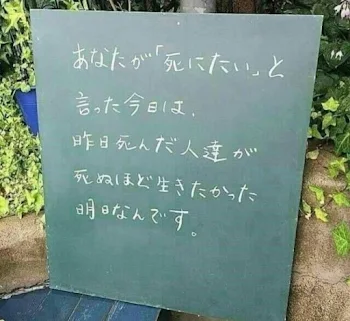 あなたが「死にたい」と
言った今日は、
昨日死んだ人達が
死ぬほど生きたかった
明日なんです。